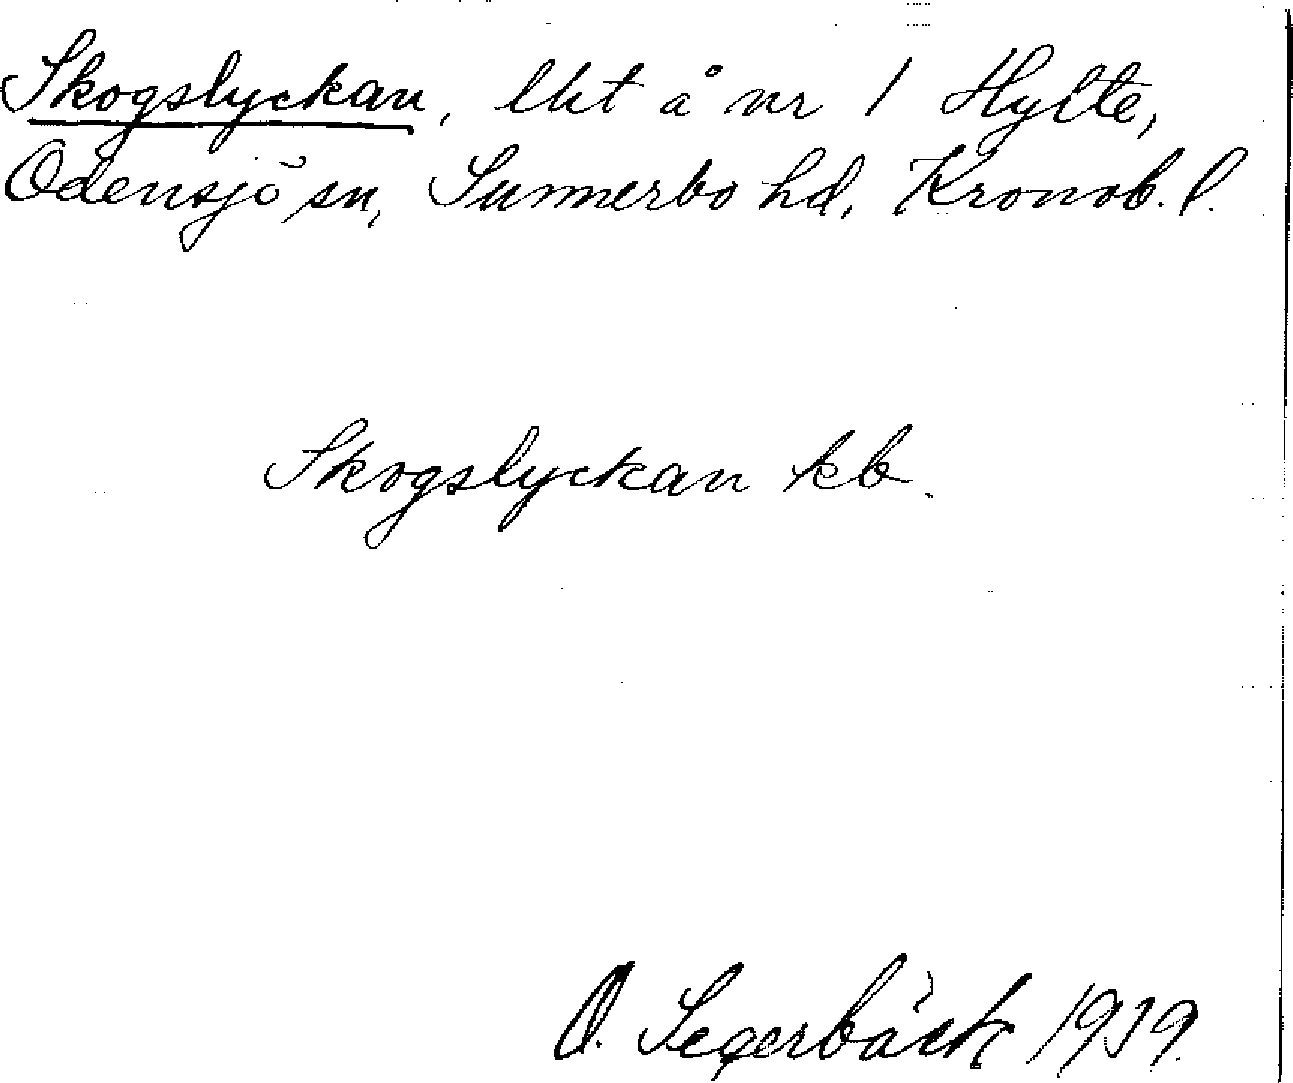 Skogslyckan, lht å nr 1 Hylte,
Odensjö sn, Sunnerbo hd, Kronob. l.
Skogslyckan kb.
O. Segerbäck 1939.